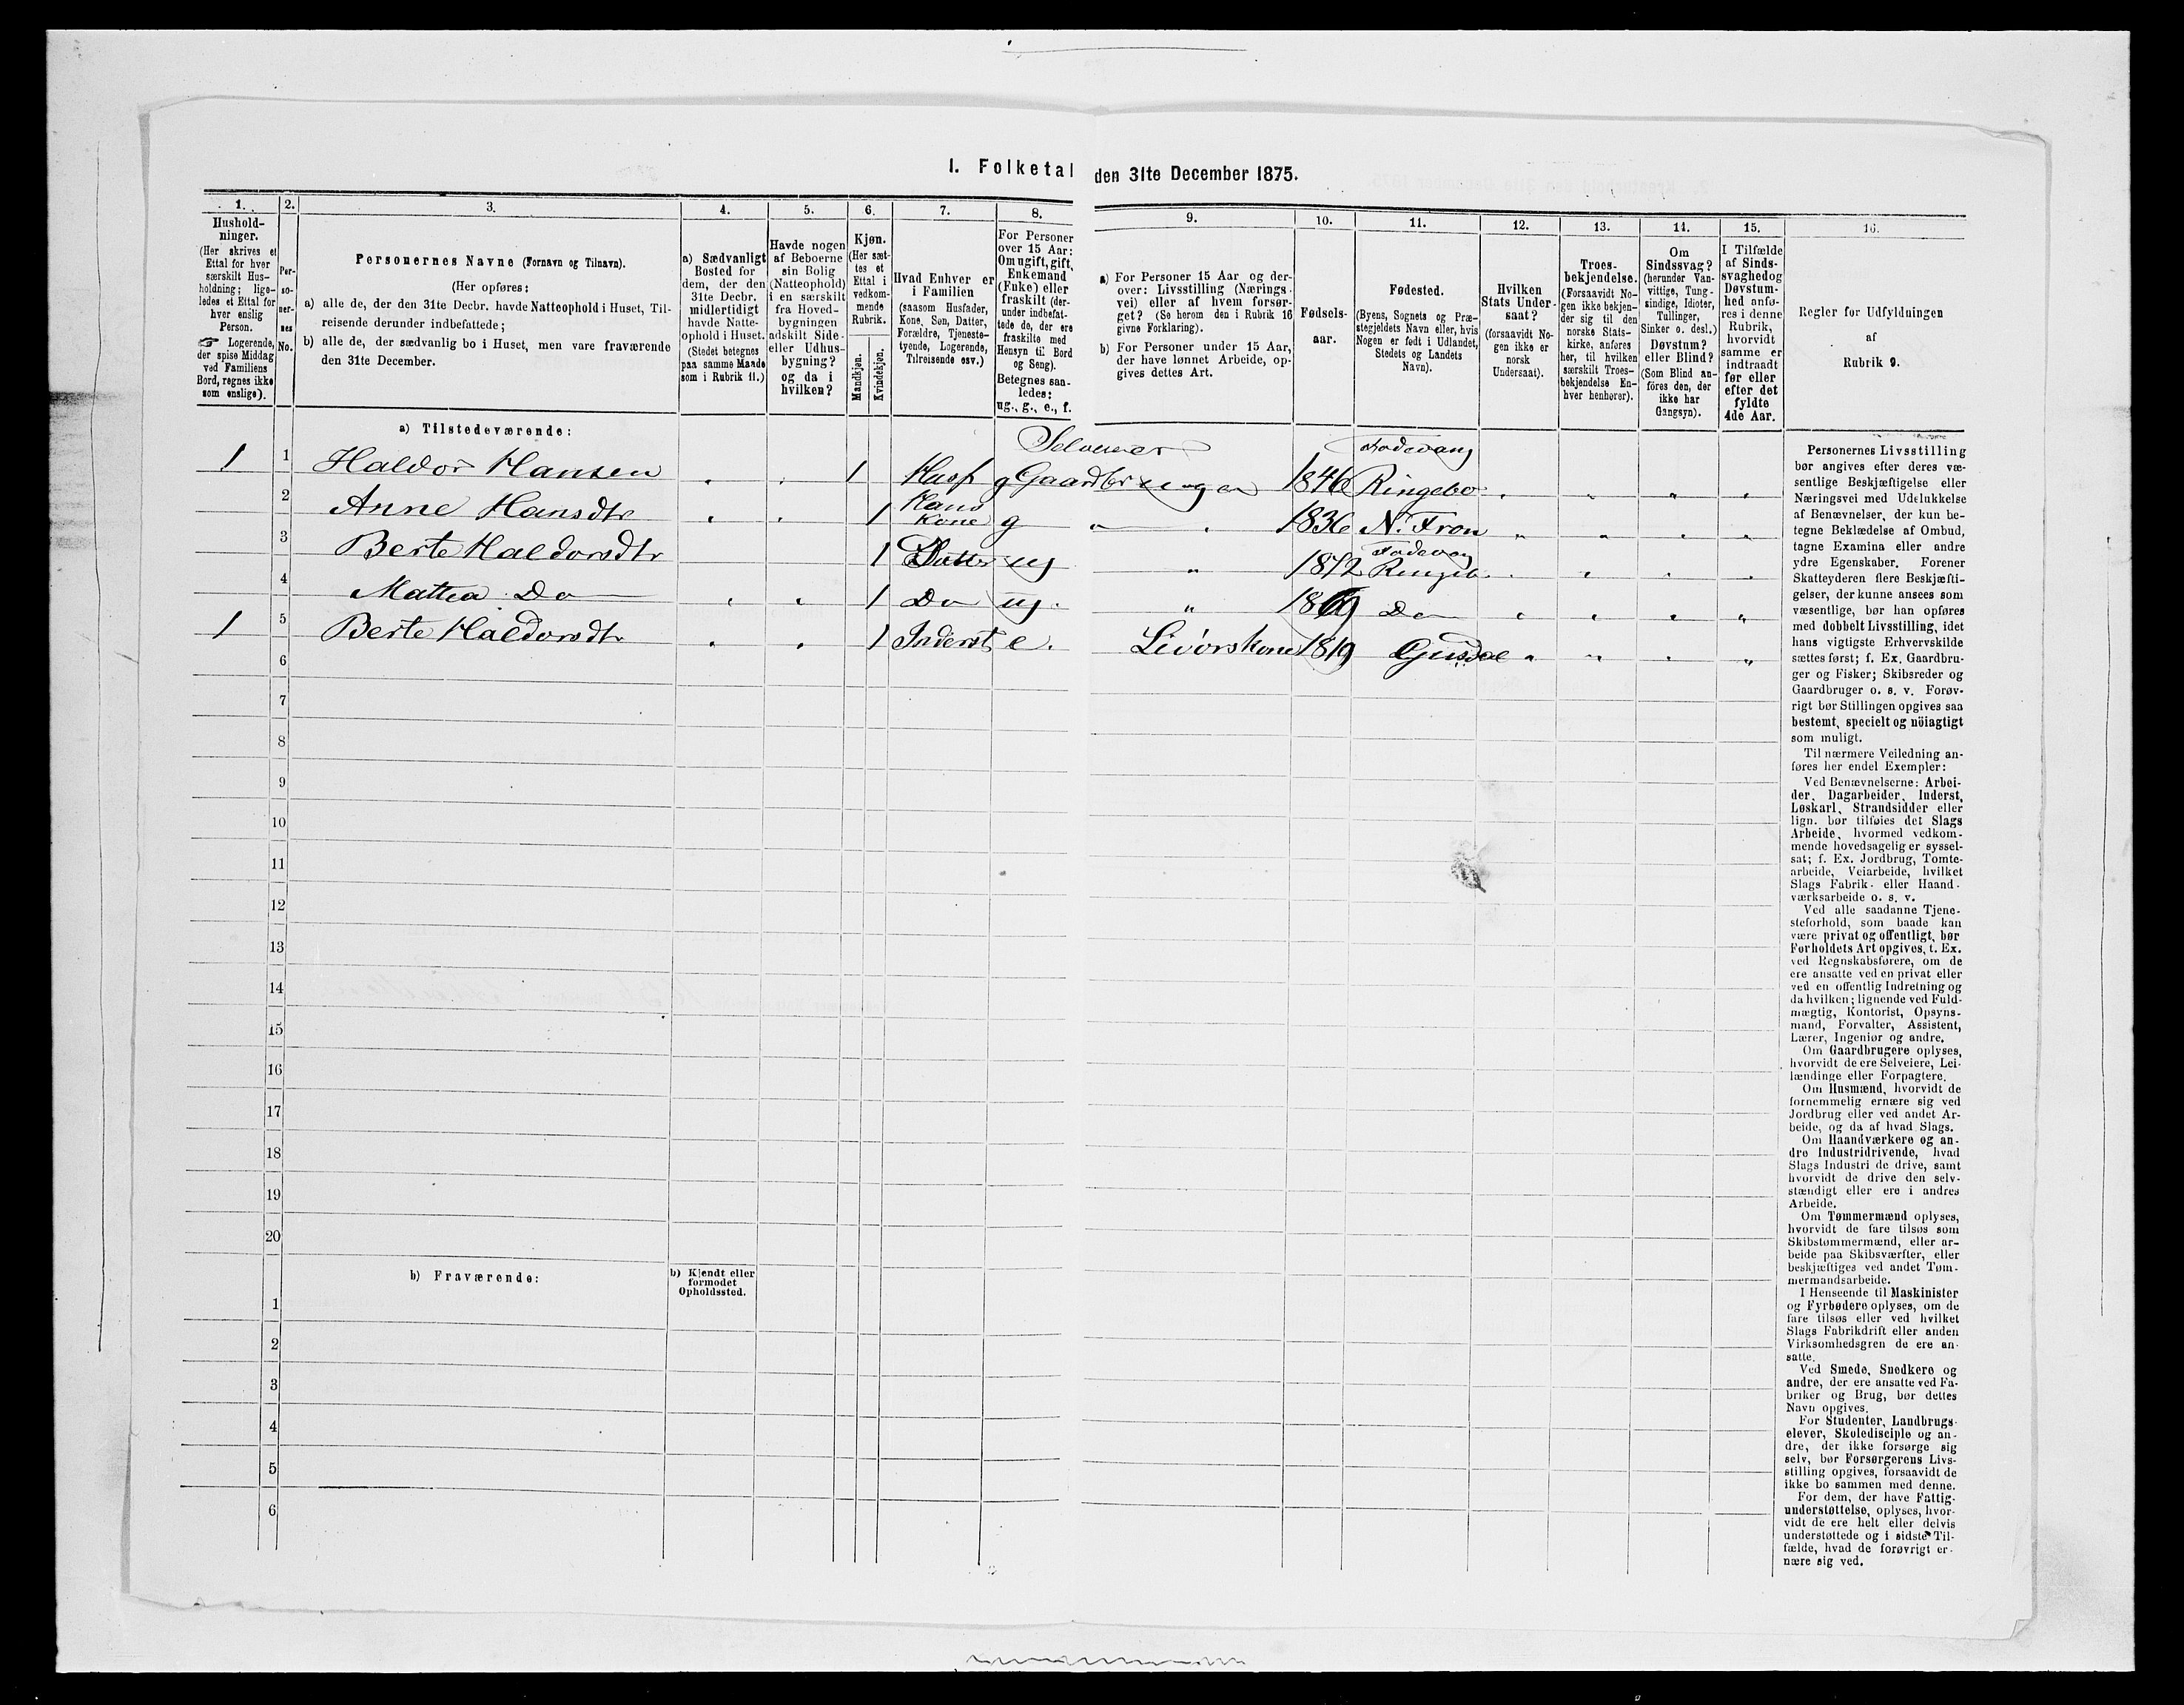 I. Folketal den 31te December 1875.
1.
Hushold-
ninger.
(Her skrives et
Ettal for hver
særskilt Hus-
holdning; lige-
ledes et Ettal for
hver enslig
Person.
☞ Logerende,
der spise Middag
ved Familiens
Bord, regnes ikke
som enslige).
2.
Per-
so-
ner-
nes
No.
3.
Personernes Navne (Fornavn og Tilnavn).
(Her opføres:
a) alle de, der den 31te Decbr. havde Natteophold i Huset, Til-
reisende derunder indbefattede;
b) alle de, der sædvanlig bo i Huset, men vare fraværende
den 31te December.
4.
a) Sædvanligt
Bosted for
dem, der den
31te Decbr.
midlertidigt
havde Natte-
ophold i Huset.
(Stedet betegnes
paa samme Maade
som i Rubrik 11.)
5.
Havde nogen
af Beboerne
sin Bolig
(Natteophold)
i en særskilt
fra Hoved-
bygningen
adskilt Side-
eller Udhus-
bygning?
og da i
hvilken?
6.
Kjøn.
(Her sæt-
tes et
Ettal i
vedkom-
mende
Rubrik.
Mandkjøn.
Kvindekjøn.
7.
Hvad Enhver er
i Familien
(saasom Husfader,
Kone, Søn, Datter,
Forældre, Tjeneste-
tyende, Logerende,
Tilreisende osv.)
8.
For Personer
over 15 Aar:
Om ugift, gift,
Enkemand
(Enke) eller
fraskilt (der-
under indbefat-
tede de, der ere
fraskilte med
Hensyn til Bord
og Seng).
Betegnes saa-
ledes:
ug., g., e., f.
9.
a) For Personer 15 Aar og der-
over: Livsstilling (Nærings-
vei) eller af hvem forsør-
get? (Se herom den i Rubrik 16
givne Forklaring).
b) For Personer under 15 Aar,
der have lønnet Arbeide, op-
gives dettes Art.
10.
Fødsels-
aar.
11.
Fødested.
(Byens, Sognets og Præ-
stegjeldets Navn eller, hvis
Nogen er født i Udlandet,
Stedets og Landets
Navn).
12.
Hvilken
Stats Under-
saat?
(forsaavidt No-
gen ikke er
norsk
Undersaat).
13.
Troes-
bekjendelse.
(Forsaavidt No-
gen ikke bekjen-
der sig til den
norske Stats-
kirke, anføres
her, til hvilken
særskilt Troes-
bekjendelse En-
hver henhører).
14.
Om
Sindssvag?
(herunder Van-
vittige, Tung-
sindige, Idioter,
Tullinger,
Sinker o. desl.)
Døvstum?
eller Blind?
(Som Blind an-
föres den, der
ikke har
Gangsyn).
15.
I Tilfælde
af Sinds-
svaghed og
Døvstum-
hed anfø-
res i denne
Rubrik,
hvorvidt
samme er
indtraadt
før eller
efter det
fyldte
4de Aar.
16.
Regler for Udfyldningen
af
Rubrik 9.
a) Tilstedeværende:
Selveier Fodevang
1 1 Haldor Hansen 1 Husf g Gaardbruger 1846 Ringebo
2 Anne Hansdtr 1 Hans Kone g " 1836 N. Fron
Fodevang
3 Berte Haldorsdtr 1 Datter ug " 1872 Ringeb
4 Mattea Do 1 Do ug. " 1869 Do
1 5 Berte Haldorsdtr 1 Inderst e. Livörskone 1819 Gusdal
6
7
8
9
10
11
12
13
14
15
16
17
18
19
20
b) Fraværende:
b) Kjendt eller
formodet
Opholdssted.
1
2
3
4
5
6
Personernes Livsstilling
bør angives efter deres væ-
sentlige Beskjæftigelse eller
Næringsvei med Udelukkelse
af Benævnelser, der kun be-
tegne Beklædelse af Ombud,
tagne Examina eller andre
ydre Egenskaber. Forener
Skatteyderen flere Beskjæfti-
gelser, der kunne ansees som
væsentlige, bør han opføres
med dobbelt Livsstilling, idet
hans vigtigste Erhvervskilde
sættes først; f. Ex. Gaardbru-
ger og Fisker; Skibsreder og
Gaardbruger o. s. v. Forøv-
rigt bør Stillingen opgives saa
bestemt, specielt og nöiagtigt
som muligt.
Til nærmere Veiledning an-
føres her endel Exempler:
Ved Benævnelserne: Arbei-
der, Dagarbeider, Inderst,
Løskarl, Strandsidder eller
lign. bør tilføies det Slags
Arbeide, hvormed vedkom-
mende hovedsagelig er syssel-
sat; f. Ex. Jordbrug, Tomte-
arbeide, Veiarbeide, hvilket
Slags Fabrik- eller Haand-
værksarbeide o. s. v.
Ved alle saadanne Tjene-
steforhold, som baade kan
være privat og offentligt, bør
Forholdets Art opgives, t. Ex.
ved Regnskabsførere, om de
ere ansatte ved en privat eller
ved en offentlig Indretning og
da hvilken; lignende ved Fuld-
mægtig, Kontorist, Opsyns-
mand, Forvalter, Assistent,
Lærer, Ingeniør og andre.
Om Gaardbrugere oplyses,
hvorvidt de ere Selveiere, Lei-
lændinge eller Forpagtere.
Om Husmænd, hvorvidt de
fornemmelig ernære sig ved
Jordbrug eller ved andet Ar-
beide, og da af hvad Slags.
Om Haandværkere og an-
dre Industridrivende, hvad
Slags Industri de drive, samt
hvorvidt de drive den selv-
stændigt eller ere i andres
Arbeide.
Om Tømmermænd oplyses,
hvorvidt de fare tilsøs som
Skibstømmermænd, eller ar-
beide paa Skibsværfter, eller
beskjæftiges ved andet Tøm-
mermandsarbeide.
I Henseende til Maskinister
og Fyrbødere oplyses, om de
fare tilsøs eller ved hvilket
Slags Fabrikdrift eller anden
Virksomhedsgren de ere an-
satte.
Ved Smede, Snedkere og
andre, der ere ansatte ved Fa-
briker og Brug, bør dettes
Navn opgives.
For Studenter, Landbrugs-
elever, Skoledisciple og an-
dre, der ikke forsørge sig
selv, bør Forsørgerens Livs-
stilling opgives, forsaavidt de
ikke bo sammen med denne.
For dem, der have Fattig-
understøttelse, oplyses, hvor-
vidt de ere helt eller delvis
understøttede og i sidste Til-
fælde, hvad de forøvrigt er-
nære sig ved.